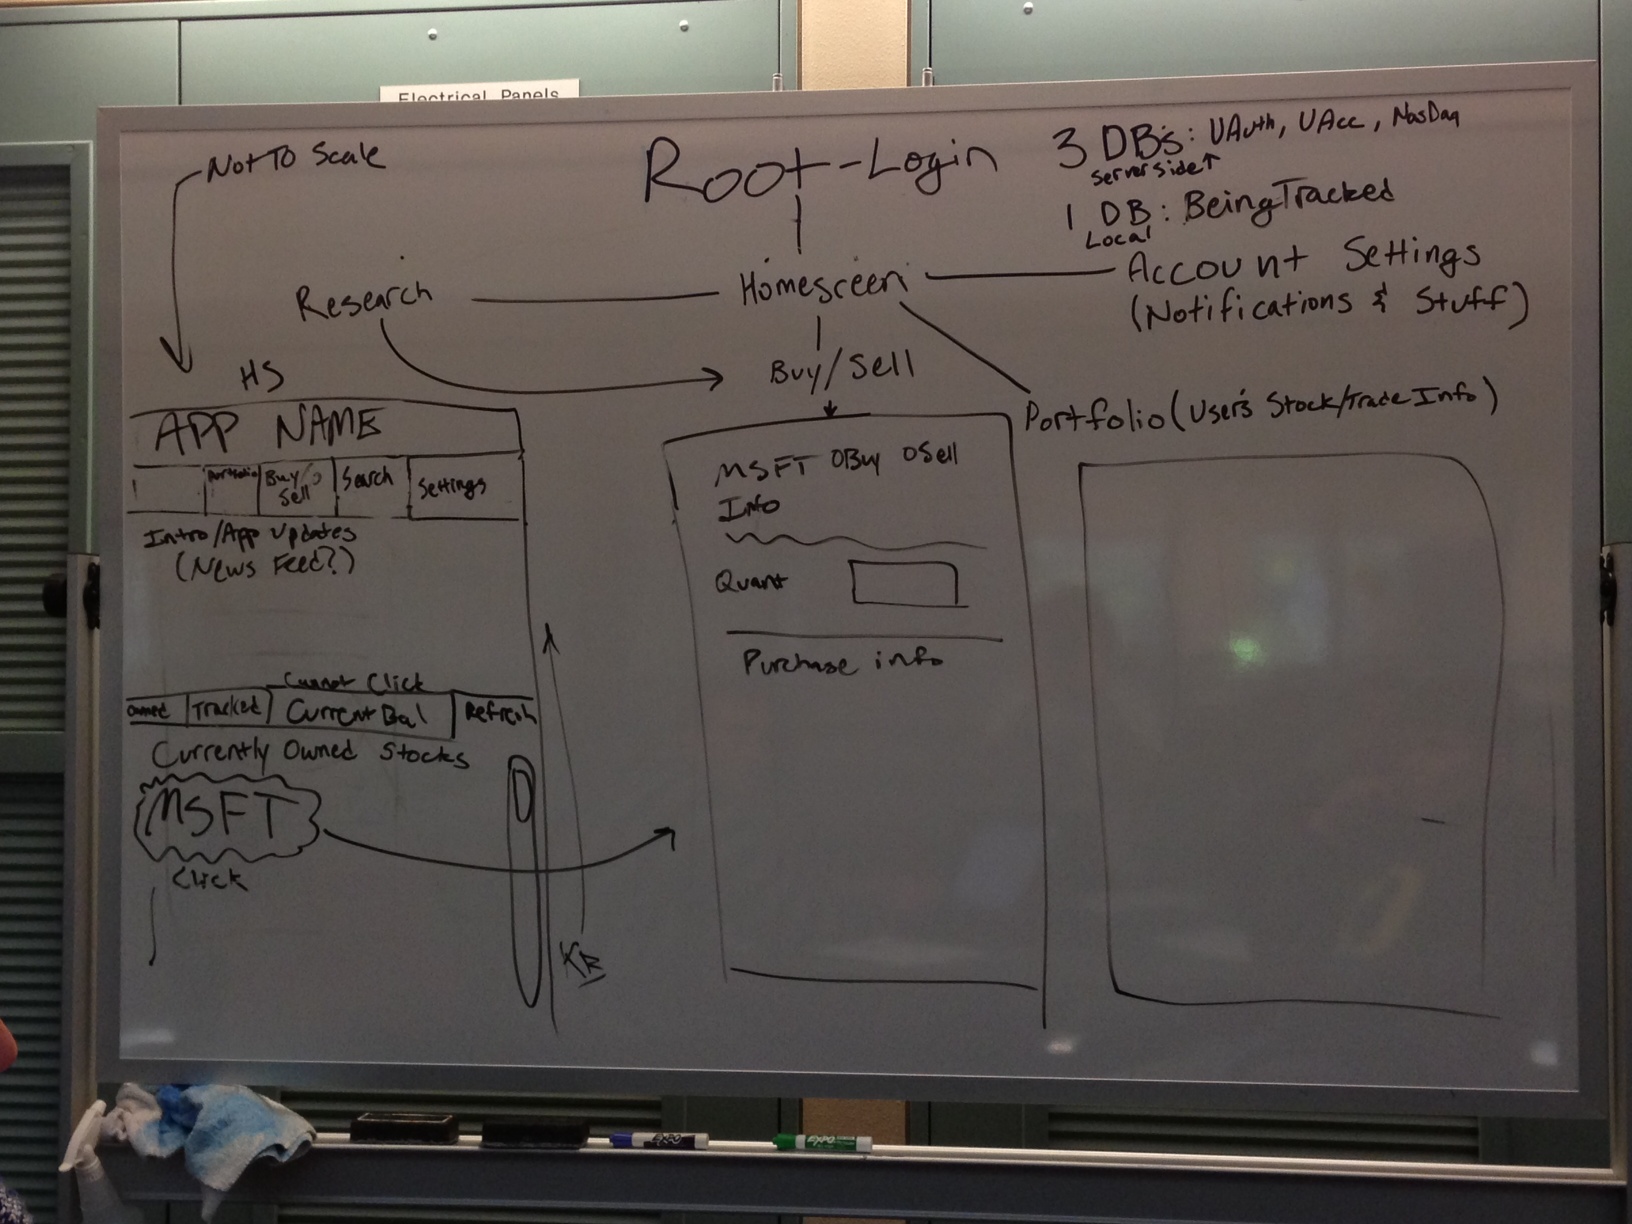 Electrical Panels
Not To Scale
Root-Login
3 DB's: UAuth, UAcc, NasDaq
Server side↑
1 DB: BeingTracked
Local
Research
Homescreen
Account Settings
(Notifications & Stuff)
Buy/Sell
Portfolio (User's Stock/Trade Info)
HS
APP NAME
Portfolio
Buy/
Sell
Search
Settings
Intro/App Updates
(News Feed?)
Cannot Click
Owned
Tracked
Current Bal
Refresh
Currently Owned Stocks
MSFT
Click
MSFT OBuy OSell
Info
Quant
Purchase info
EXPO
EXPO